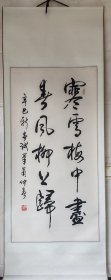 寒雪梅中盡
春風柳上歸
辛巳秋